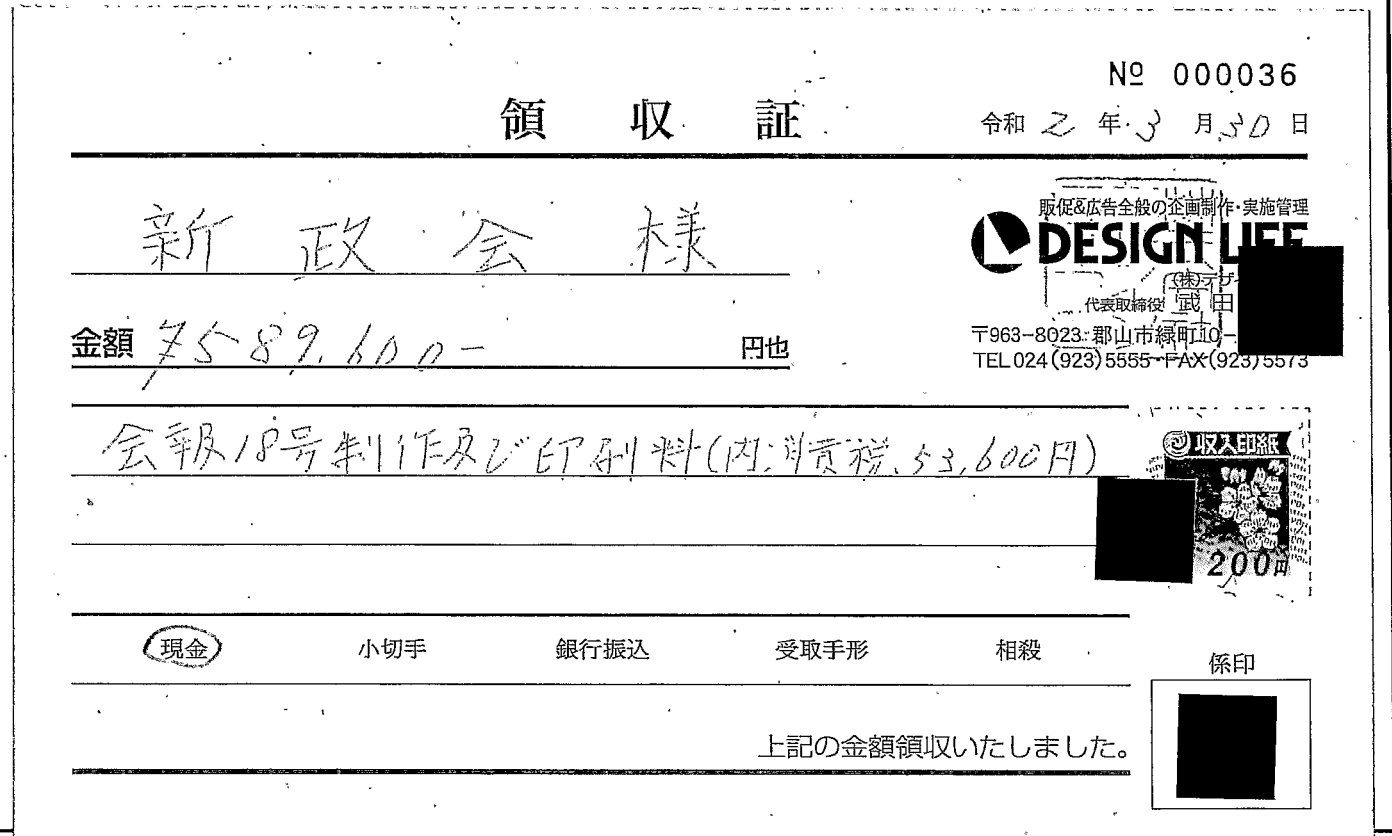 № 000036
領収証
令和2年3月30日
新政会様
販促&広告全般の企画制作・実施管理
DESIGN LIFE
(株)デザイ
代表取締役 武田
金額 ¥589,600- 円也
〒963-8023 郡山市緑町10-
TEL024(923)5555 FAX(923)5573
会報18号制作及び印刷料(内消費税、53,600円)
収入印紙
200円
現金 小切手 銀行振込 受取手形 相殺
係印
上記の金額領収いたしました。